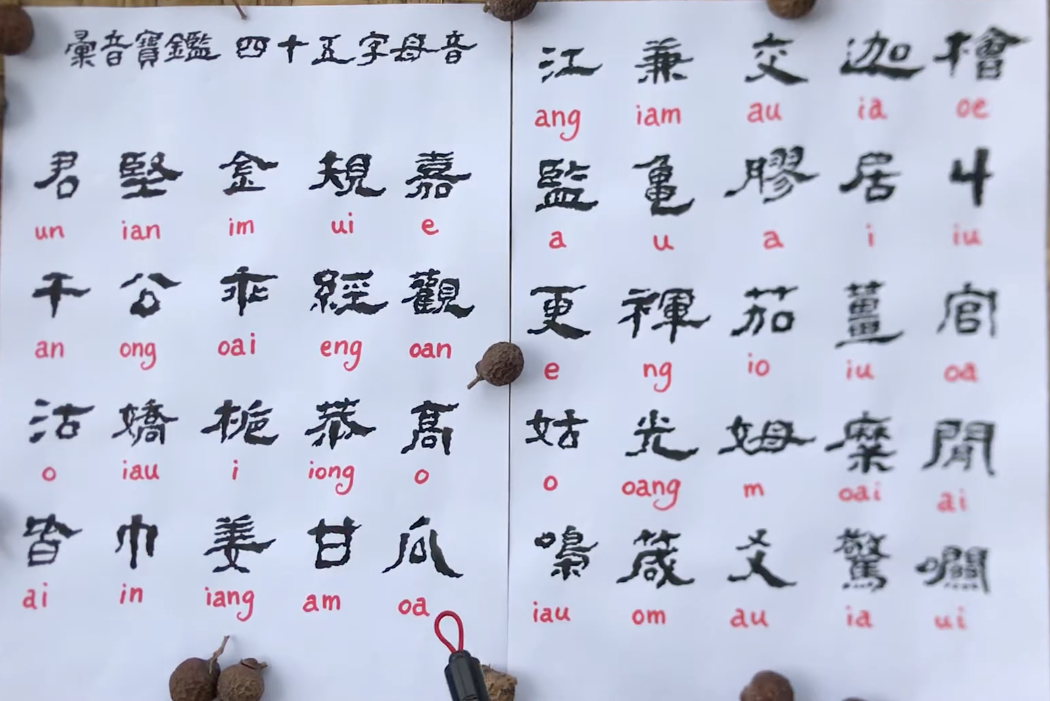 彙音寶鑑 四十五字母音
君 堅 金 規 嘉
un ian im ui e
干 公 乖 經 觀
an ong oai eng oan
沽 嬌 栀 恭 高
o iau i iong o
皆 巾 姜 甘 瓜
ai in iang am oa
江 兼 交 迦 檜
ang iam au ia oe
監 龟 膠 居 丩
a u a i iu
更 褌 茄 薑 官
e ng io iu oa
姑 光 姆 糜 閒
o oang m oai ai
嘄 箴 爻 驚 嘓
iau om au ia ui